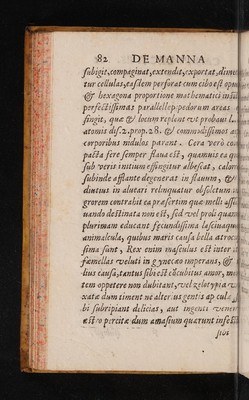 82 DE MANNA
subigit, compaginat, extendit, exportat, dime
tur cellulas, easdem perforat cum cibo est opus
& hexagona proportione mathematici insunt
perfectissimas parallelepipedorum areas
fingit, quæ & locum replent ut probavi
atomis dis. 2. prop. 28. & commodissimos
corporibus nidulos parant. Cera verò com
pacta fere semper flava est, quamvis ea quæ
sub veris initium effingitur albescat, calore
subinde afflante degenerat in flavum, &
diutius in alveari relinquatur obsoletum
grorem contrahit ea præsertim quæ melli asser
vando destinata non est, sed vel proli quam
plurimam educant fecundissima lascivaque
animalcula, quibus maris causa bella atrocis
sima sunt, Rex enim masculus est inter
fæmellas veluti in gynecæo imperans, &
lius causa, tantus sibi est cōcubitus amor, mor
tem oppetere non dubitant, vel zelotypia
xatæ dum timent ne alter. us gentis ap culæ
bi subripiant delicias, aut ingenti veneris
æst o percitæ dum amasium quærunt infest